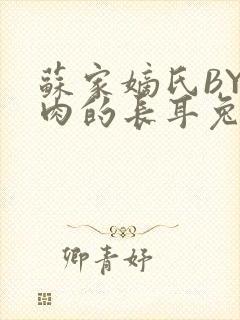 蘇家嫡氏BY
肉的長耳兔
卿青妤